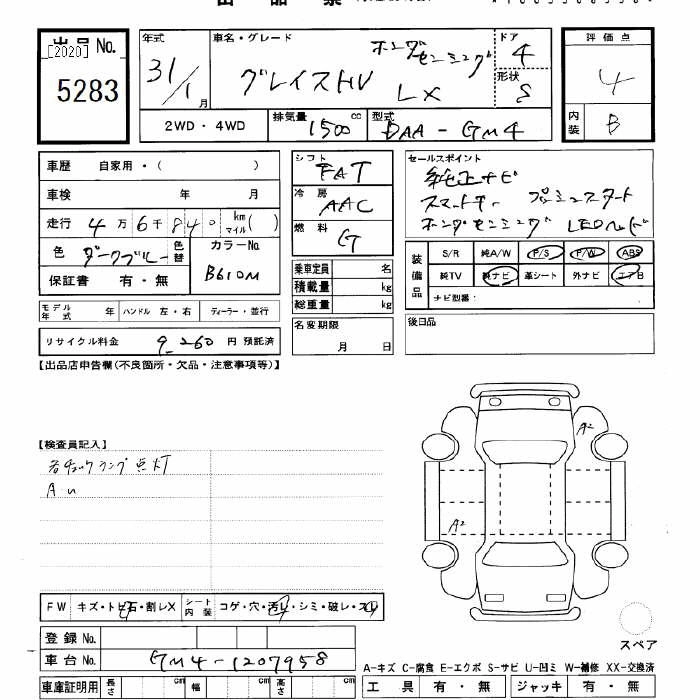 出品票
出品 No.
[2020]
5283
年式
31/1 月
車名・グレード
グレイス HV
ホンダセンシング
LX
ドア
4
形状
S
評価点
4
内装
B
2WD・4WD
排気量
1500 cc
型式
DAA-GM4
車歴 自家用・( )
車検 年 月
走行 4万6千840 km マイル( )
色 ダークブルー
色替
カラーNo.
B610M
保証書 有・無
モデル年式 年 ハンドル 左・右 ディーラー・並行
リサイクル料金 9,260 円 預託済
シフト
FAT
冷房
AAC
燃料
G
乗車定員 名
積載量 kg
総重量 kg
名変期限
月 日
セールスポイント
純正ナビ
スマートキー プッシュスタート
ホンダセンシング LEDヘッド
装備品
S/R 純A/W P/S P/W ABS
純TV 純ナビ 革シート 外ナビ エアB
ナビ型番:
後日品
【出品店申告欄(不良箇所・欠品・注意事項等)】
【検査員記入】
各チェックランプ点灯
A u
A2
A2
FW キズ・トビ石・割レX シート内装 コゲ・穴・汚レ・シミ・破レ・スレ
登録 No.
車台 No. GM4-1207958
車庫証明用 長さ cm 幅 cm 高さ cm
スペア
A-キズ C-腐食 E-エクボ S-サビ U-凹ミ W-補修 XX-交換済
工具 有・無 ジャッキ 有・無